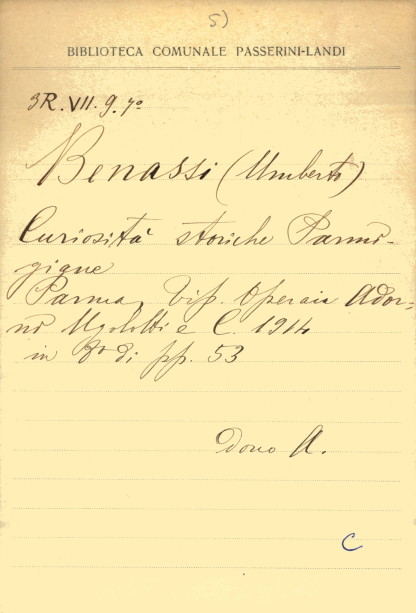 5)
BIBLIOTECA COMUNALE PASSERINI-LANDI
3R.VII.9.7º
Benassi (Umberto)
Curiosità storiche Parmi-
giane
Parma, Tip. Operaia Ador-
ni Ugolotti e C. 1914
in 8º di pp. 53
Dono A.
C